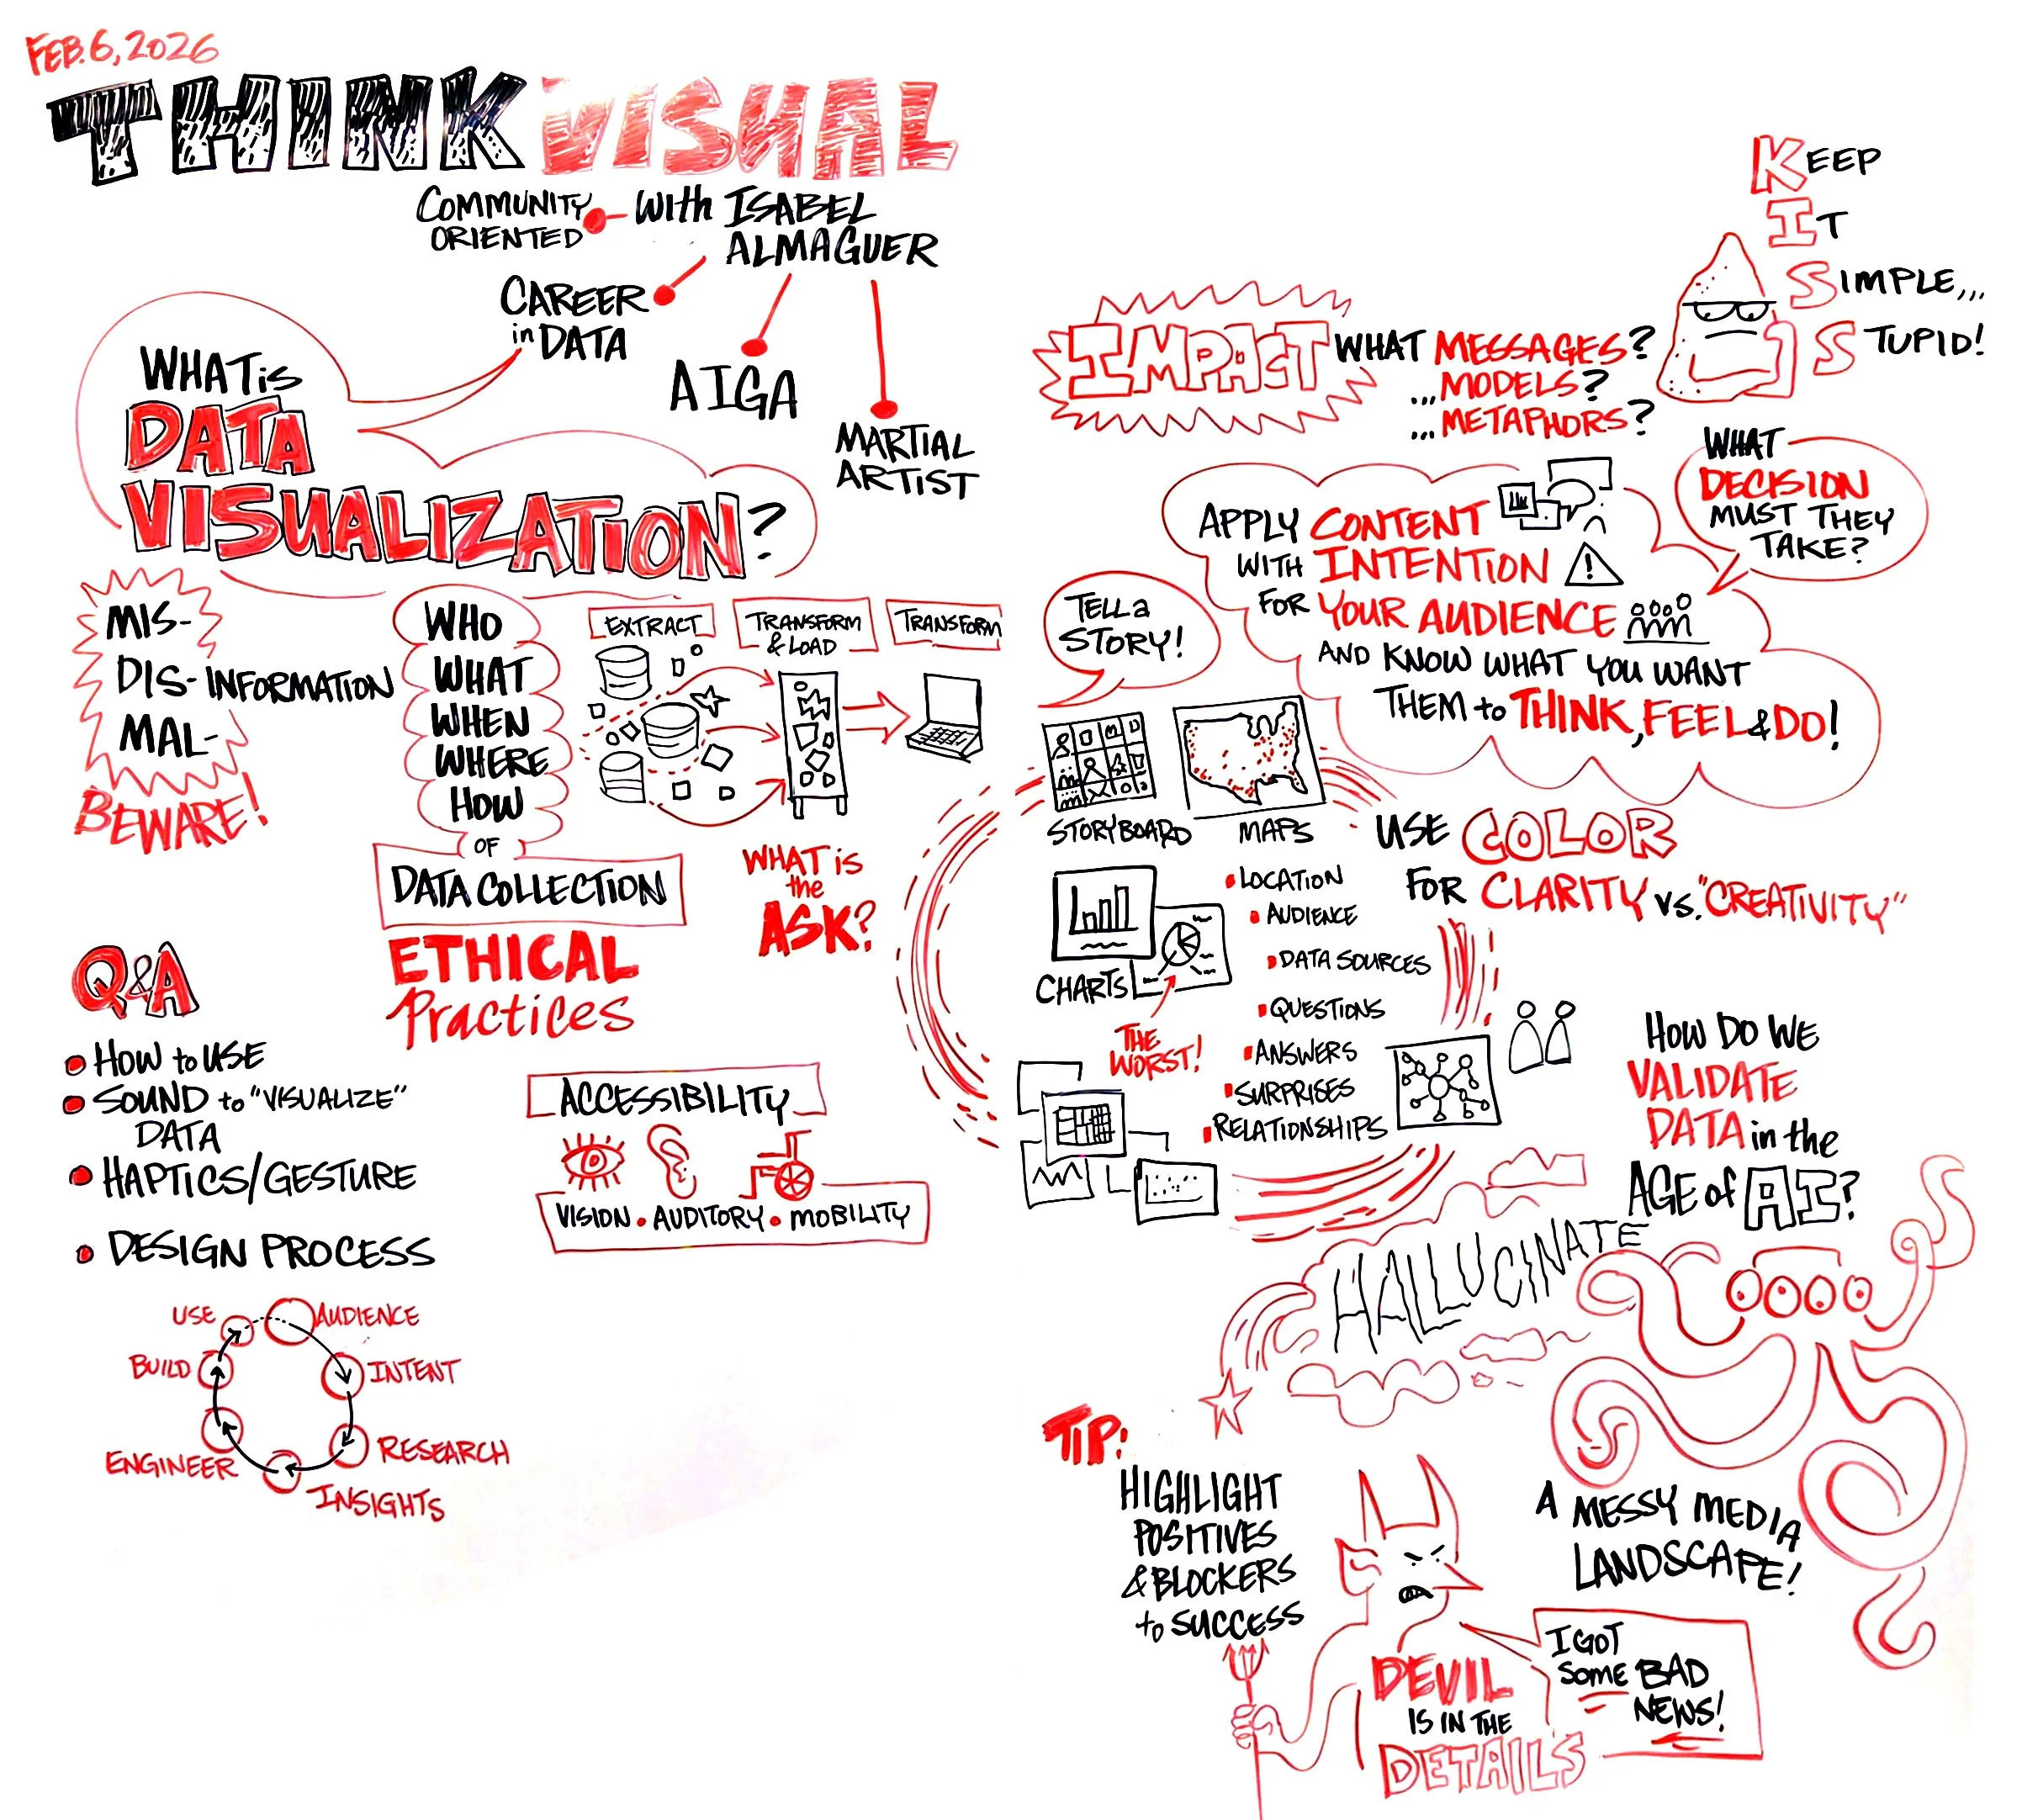 FEB. 6, 2026
THINK VISUAL
COMMUNITY
ORIENTED
with ISABEL
ALMAGUER
CAREER
in DATA
AIGA
MARTIAL
ARTIST
WHAT is
DATA
VISUALIZATION?
MIS-
DIS- INFORMATION
MAL-
BEWARE!
WHO
WHAT
WHEN
WHERE
HOW
OF
DATA COLLECTION
ETHICAL
Practices
EXTRACT
TRANSFORM
& LOAD
TRANSFORM
WHAT is
the
ASK?
Q&A
HOW to USE
SOUND to "VISUALIZE"
DATA
HAPTICS/GESTURE
DESIGN PROCESS
USE
AUDIENCE
BUILD
INTENT
ENGINEER
RESEARCH
INSIGHTS
ACCESSIBILITY
VISION • AUDITORY • MOBILITY
KEEP
IT
SIMPLE...
STUPID!
IMPACT
WHAT MESSAGES?
...MODELS?
...METAPHORS?
WHAT
DECISION
MUST THEY
TAKE?
APPLY CONTENT
WITH INTENTION
FOR YOUR AUDIENCE
AND KNOW WHAT YOU WANT
THEM to THINK, FEEL & DO!
TELL a
STORY!
STORYBOARD
MAPS
USE COLOR
FOR CLARITY vs. "CREATIVITY"
CHARTS
THE
WORST!
• LOCATION
• AUDIENCE
• DATA SOURCES
• QUESTIONS
• ANSWERS
• SURPRISES
• RELATIONSHIPS
HOW DO WE
VALIDATE
DATA in the
AGE of AI?
HALLUCINATE
TIP:
HIGHLIGHT
POSITIVES
& BLOCKERS
to SUCCESS
A MESSY MEDIA
LANDSCAPE!
DEVIL
IS IN THE
DETAILS
I GOT
SOME BAD
NEWS!